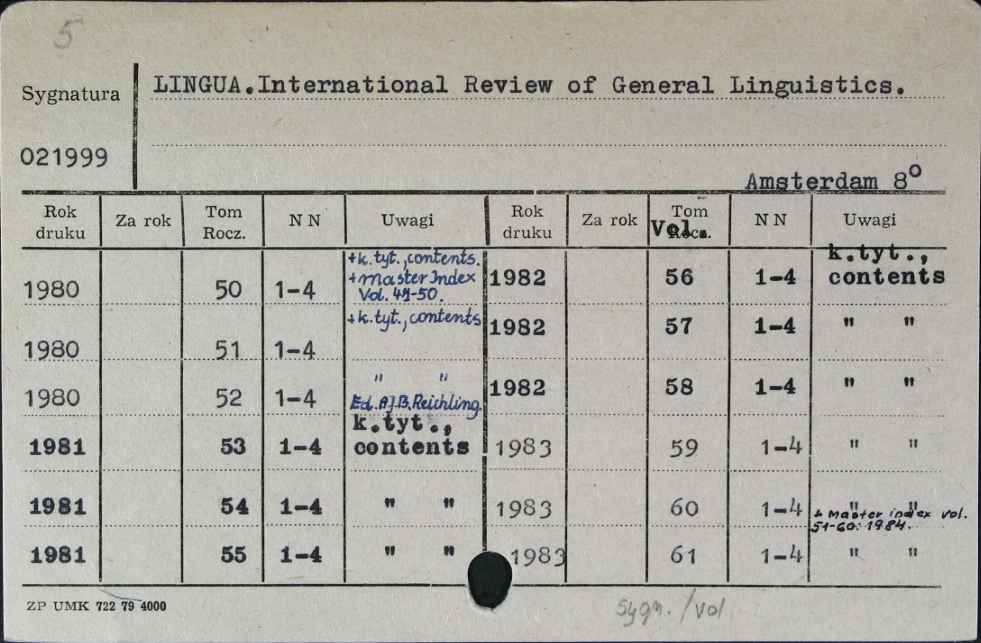 5
Sygnatura
LINGUA.International Review of General Linguistics.
021999
Amsterdam 8°
Rok druku Za rok Tom Rocz. N N Uwagi Rok druku Za rok Tom Rocz. Vol. N N Uwagi
1980 50 1-4 +k.tyt.,contents.
+Master Index
Vol. 41-50.
1982 56 1-4 k.tyt.,
contents
1980 51 1-4 +k.tyt.,contents
1982 57 1-4 " "
1980 52 1-4 " "
Ed. A.J.B.Reichling.
1982 58 1-4 " "
1981 53 1-4 k.tyt.,
contents
1983 59 1-4 " "
1981 54 1-4 " "
1983 60 1-4 " "
+ Master index vol.
51-60: 1984.
1981 55 1-4 " "
1983 61 1-4 " "
ZP UMK 722 79 4000
sygn. / vol